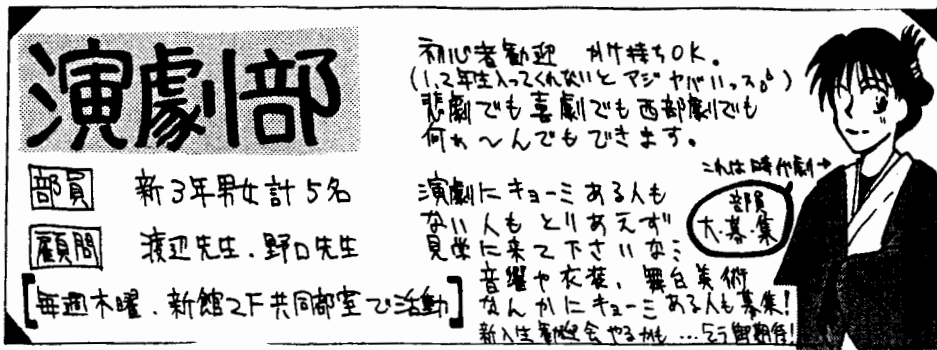 演劇部
部員 新3年男女計5名
顧問 渡辺先生.野口先生
[毎週木曜.新館2F共同部室で活動]
初心者歓迎 かけ持ちOK。
(1、2年生入ってくれないと アジ ヤバいっスよ)
悲劇でも喜劇でも西部劇でも
何ぁ〜んでもできます。
演劇にキョーミある人も
ない人も とりあえず
見学に来て下さいな
音響や衣装、舞台美術
なんかにキョーミある人も募集!
新入生歓迎会やるかも…乞う御期待!
これは時代劇→
部員
大・募・集